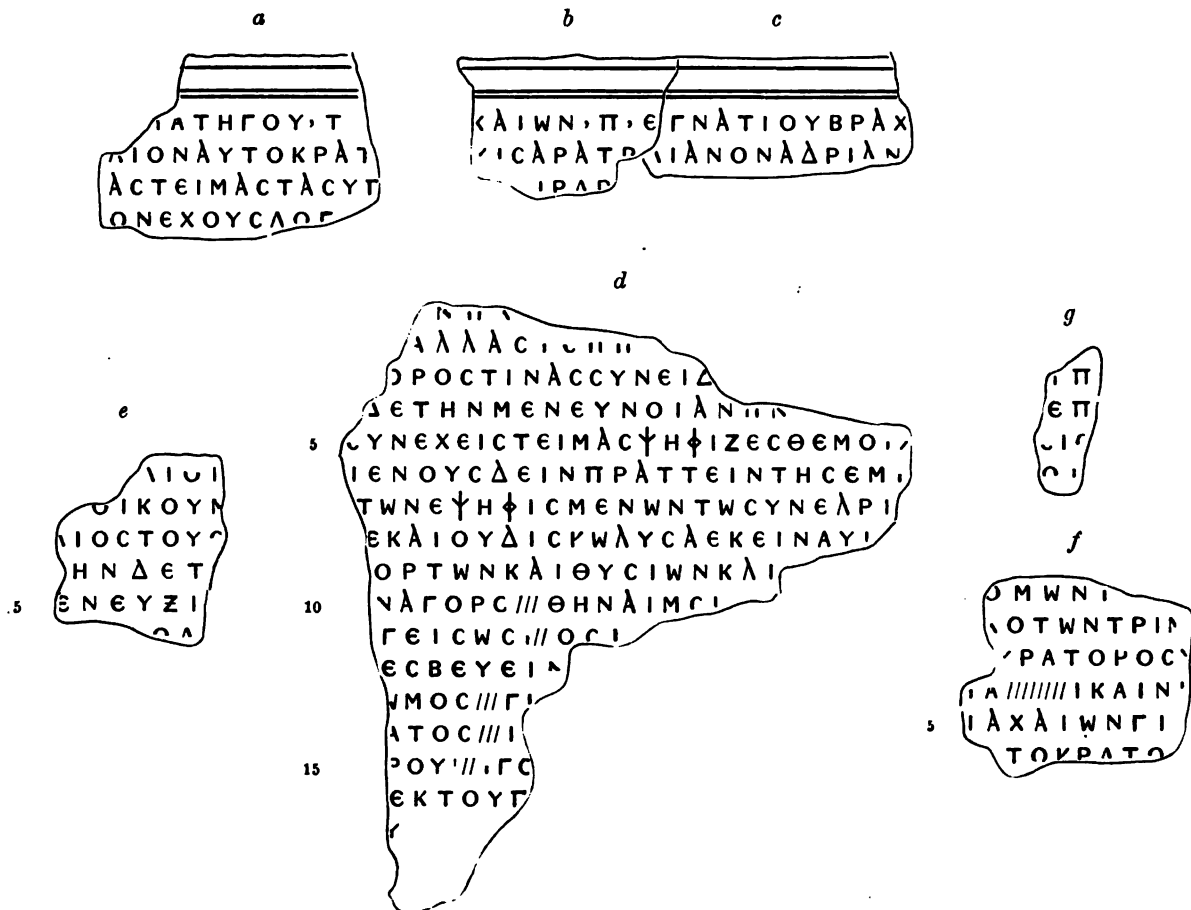 a
b
c
ΑΤΗΓΟΥ,Τ
ΙΟΝΑΥΤΟΚΡΑΤ
ΑϹΤΕΙΜΑϹΤΑϹΥΠ
ΟΝΕΧΟΥϹΑΟΓ
ΚΑΙWΝ,Π,ΕΓΝΑΤΙΟΥΒΡΑΧ
ΙϹΑΡΑΤΡ ΙΑΝΟΝΑΔΡΙΑΝ
ΙΡΑΓ
d
ΑΛΛΑϹ
ΟΡΟϹΤΙΝΑϹϹΥΝΕΙΔ
ΔΕΤΗΝΜΕΝΕΥΝΟΙΑΝ
5 ϹΥΝΕΧΕΙϹΤΕΙΜΑϹΨΗΦΙΖΕϹΘΕΜΟ
ΙΕΝΟΥϹΔΕΙΝΠΡΑΤΤΕΙΝΤΗϹΕΜ
ΤWΝΕΨΗΦΙϹΜΕΝWΝΤWϹΥΝΕΔΡΙ
ΕΚΑΙΟΥΔΙϹΚWΛΥϹΑΕΚΕΙΝΑΥ
ΟΡΤWΝΚΑΙΘΥϹΙWΝΚΑΙ
10 ΝΑΓΟΡϹ///ΘΗΝΑΙΜ
ΓΕΙϹWϹ //Ο
ΕϹΒΕΥΕΙ
ΜΟϹ///Γ
ΑΤΟϹ///Ι
15 ΡΟΥ // ΓϹ
ΕΚΤΟΥΓ
e
ΟΙΚΟΥΝ
ΙΟϹΤΟΥ
ΗΝΔΕΤ
5 ΕΝΕΥΞΙ
g
Π
ΕΠ
f
ΟΜWΝ
ΟΤWΝΤΡΙ
ΡΑΤΟΡΟϹ
Α////////ΙΚΑΙΝ
5 ΙΑΧΑΙWΝΓΙ
ΤΟΚΡΑΤΟ